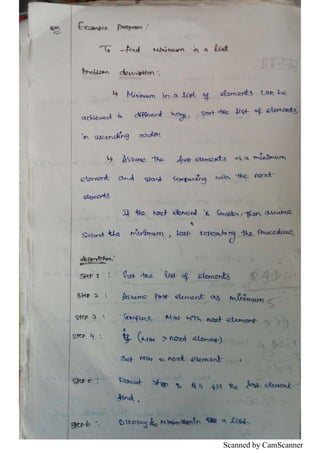 Example program:
To find Minimum in a list
Problem description:
↳ Minimum in a list of elements can be
achieved in different ways. sort the list of elements
in ascending order
↳ Assume the first elements as a minimum
element and start comparing with the next
elements
If the next element is smaller, then assume
second the minimum, keep repeating the procedure
description:
Step 1 : Get the list of elements
Step 2 : Assume first element as minimum
Step 3 : Compare MIN with next element
Step 4 : if (MIN > next element)
Set MIN = next element.
Step 5 : Repeat step 3 & 4 till the last element
find.
Step 6 : Display Minimum in a list.
Scanned by CamScanner